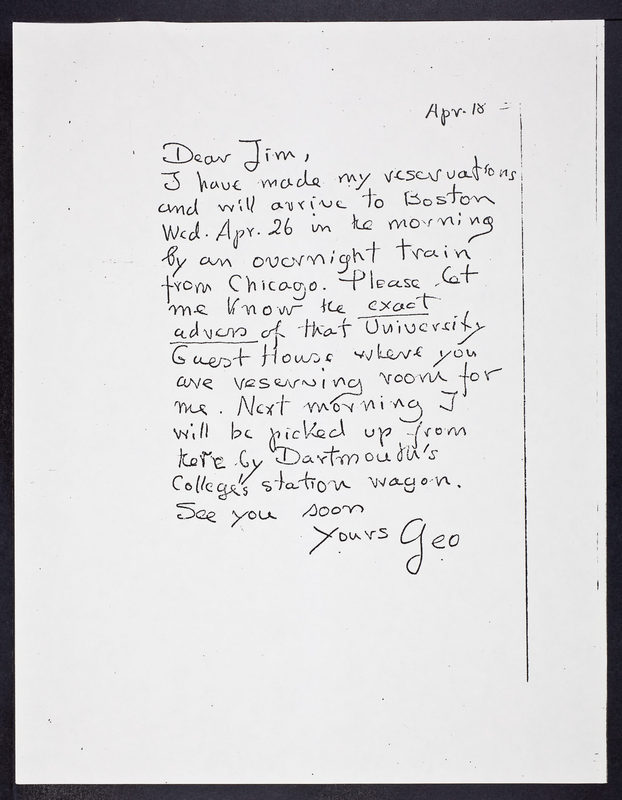 Apr. 18
Dear Jim,
I have made my reservations
and will arrive to Boston
Wed. Apr. 26 in the morning
by an overnight train
from Chicago. Please let
me know the exact
adress of that University
Guest House where you
are reserving room for
me. Next morning I
will be picked up from
here by Dartmouth's
College's station wagon.
See you soon
Yours Geo